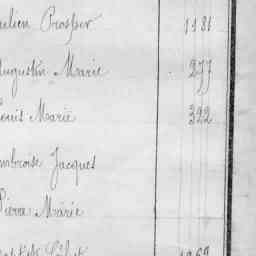 ulien Prosper 1181
Augustin Marie 277
Louis Marie 322
Ambroise Jacques
Pierre Marie